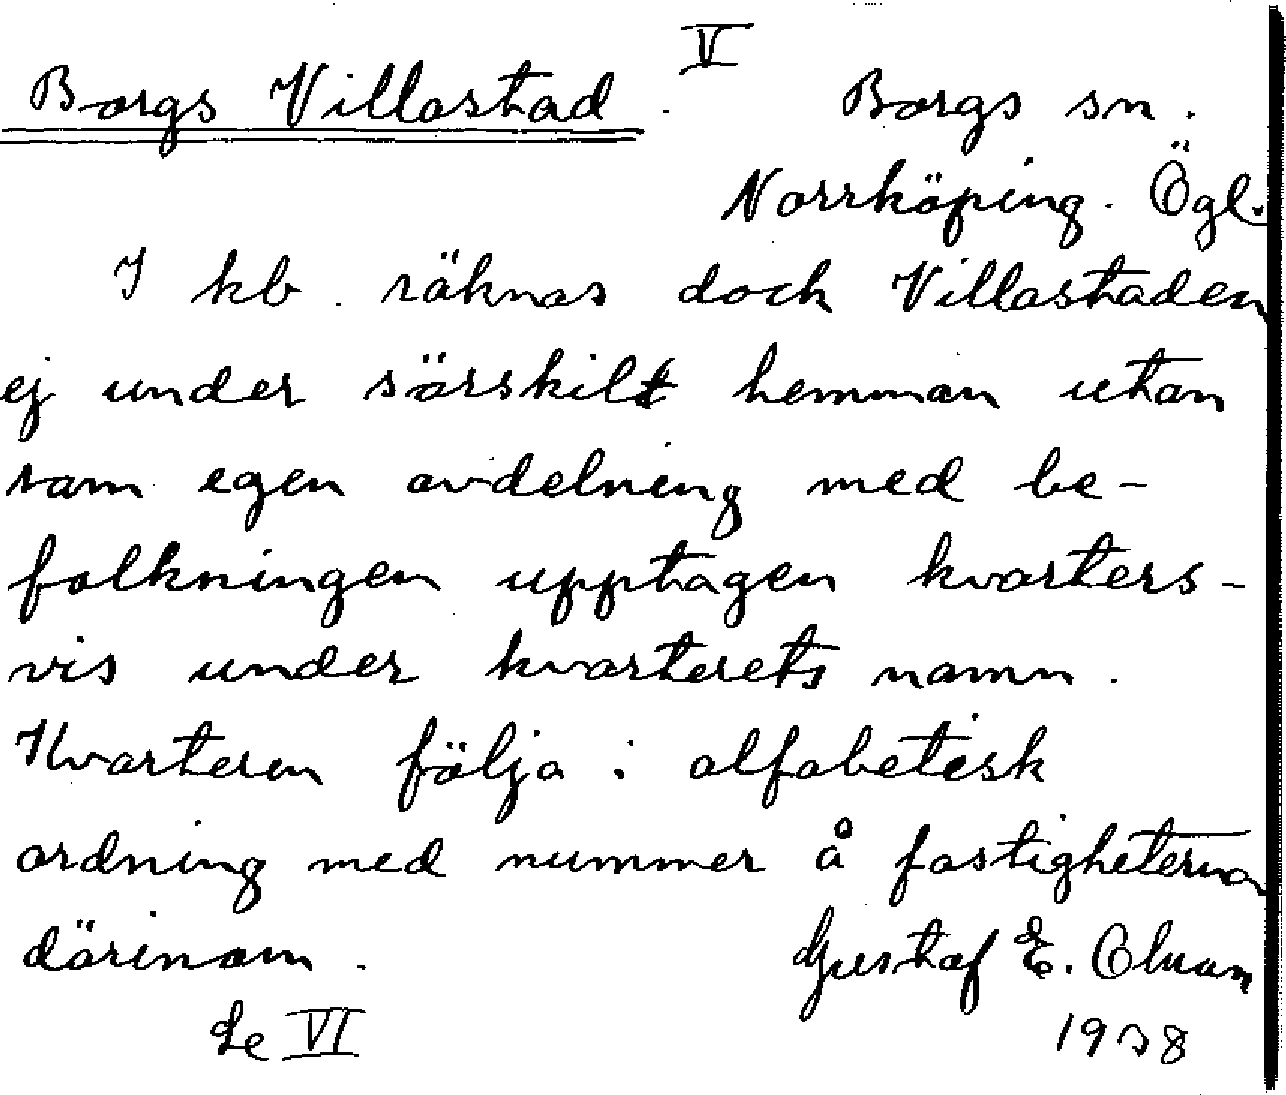 V
Borgs Villastad. Borgs sn.
Norrköping. Ögl.
I kb. räknas dock Villastaden
ej under särskilt hemman utan
som egen avdelning med be-
folkningen upptagen kvarters-
vis under kvarterets namn.
Kvarteren följa i alfabetisk
ordning med nummer å fastigheterna
därinom. Gustaf E.
Se VI